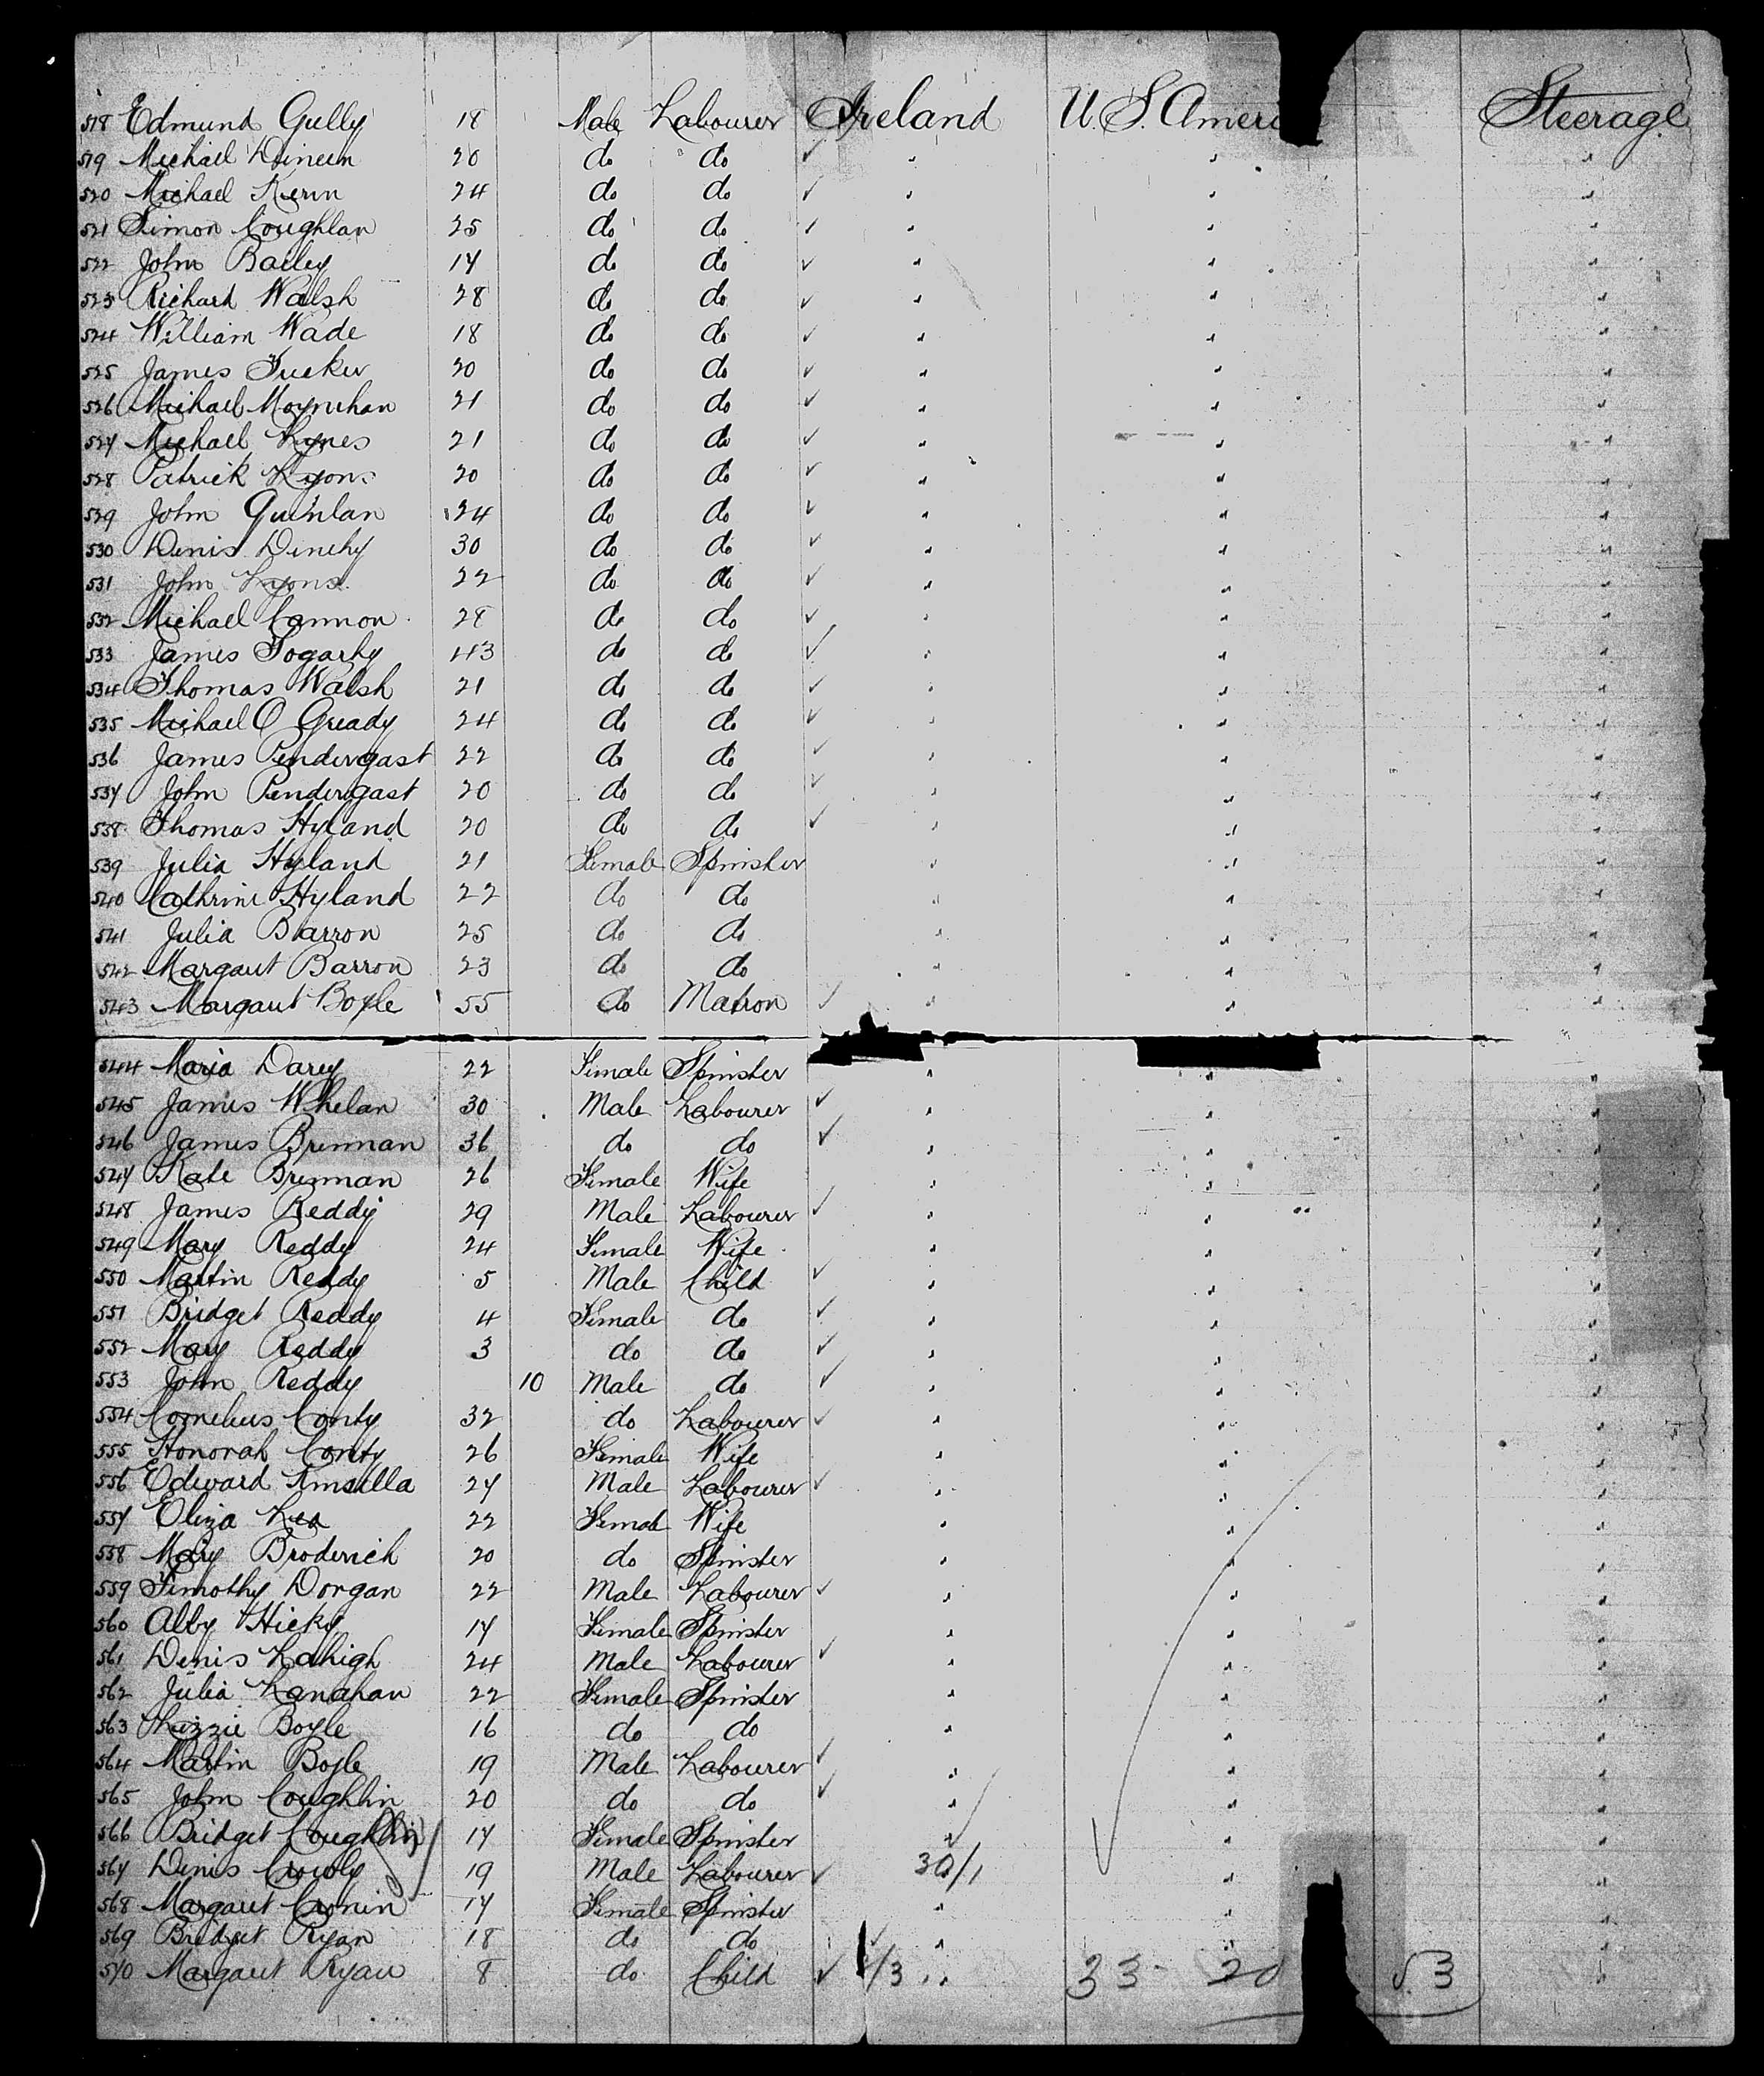 518 Edmund Gully 18 Male Labourer Ireland U.S. Ameri Steerage
519 Michael Dineen 20 do do ✓ " " "
520 Michael Kerin 24 do do ✓ " " "
521 Simon Coughlan 25 do do ✓ " " "
522 John Bailey 17 do do ✓ " " "
523 Richard Walsh 28 do do ✓ " " "
524 William Wade 18 do do ✓ " " "
525 James Tucker 20 do do ✓ " " "
526 Michael Moynihan 21 do do ✓ " " "
527 Michael Lynes 21 do do ✓ " " "
528 Patrick Lyons 20 do do ✓ " " "
529 John Quinlan 24 do do ✓ " " "
530 Denis Dinehy 30 do do ✓ " " "
531 John Lyons 22 do do ✓ " " "
532 Michael Cannon 28 do do ✓ " " "
533 James Fogarty 43 do do ✓ " " "
534 Thomas Walsh 21 do do ✓ " " "
535 Michael O Gready 24 do do ✓ " " "
536 James Pendergast 22 do do ✓ " " "
537 John Pendergast 20 do do ✓ " " "
538 Thomas Hyland 20 do do ✓ " " "
539 Julia Hyland 21 Female Spinster " " "
540 Cathrine Hyland 22 do do " " "
541 Julia Barron 25 do do " " "
542 Margaret Barron 23 do do " " "
543 Margaret Boyle 55 do Matron ✓ " " "
544 Maria Darcy 22 Female Spinster " " "
545 James Whelan 30 Male Labourer ✓ " " "
546 James Brennan 36 do do ✓ " " "
547 Kate Brennan 26 Female Wife " " "
548 James Reddy 29 Male Labourer ✓ " " "
549 Mary Reddy 24 Female Wife " " "
550 Martin Reddy 5 Male Child ✓ " " "
551 Bridget Reddy 4 Female do ✓ " " "
552 Mary Reddy 3 do do ✓ " " "
553 John Reddy 10 Male do ✓ " " "
554 Cornelius Conty 32 do Labourer ✓ " " "
555 Honorah Conty 26 Female Wife " " "
556 Edward Kinsella 27 Male Labourer ✓ " " "
557 Eliza Lea 22 Female Wife " " "
558 Mary Broderick 20 do Spinster " " "
559 Timothy Dorgan 22 Male Labourer ✓ " " "
560 Alby Hicky 17 Female Spinster " " "
561 Denis Lahigh 24 Male Labourer ✓ " " "
562 Julia Lanahan 22 Female Spinster " " "
563 Lizzie Boyle 16 do do " " "
564 Martin Boyle 19 Male Labourer ✓ " " "
565 John Coughlin 20 do do ✓ " " "
566 Bridget Coughlin 17 Female Spinster " " "
567 Denis Crowly 19 Male Labourer ✓ 30/1 " "
568 Margaret Cronin 17 Female Spinster " " "
569 Bridget Ryan 18 do do " " "
570 Margaret Ryan 8 do Child ✓ /3 " 33 20 √3 "